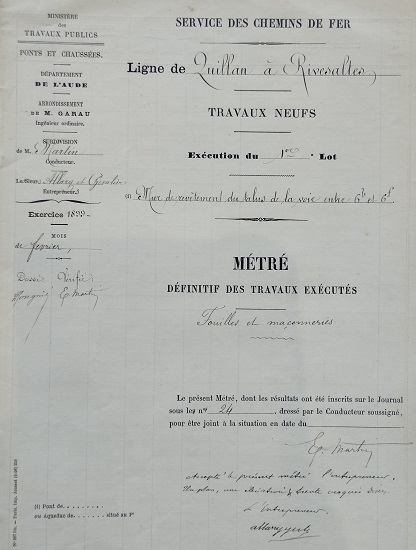 MINISTÈRE
des
TRAVAUX PUBLICS
PONTS ET CHAUSSÉES
DÉPARTEMENT
DE L'AUDE
ARRONDISSEMENT
DE M. GARAU
Ingénieur ordinaire.
SUBDIVISION
de M. Martin
Conducteur.
Le Sieur Allary et
Entrepreneur
Exercice 1899
MOIS
de février
Dessin Vérifié
Ep Martin
SERVICE DES CHEMINS DE FER
Ligne de Quillan à Rivesaltes
TRAVAUX NEUFS
Exécution du 1er Lot
(1) Mur de revêtement du talus de la voie entre et
MÉTRÉ
DÉFINITIF DES TRAVAUX EXÉCUTÉS
Fouilles et maçonneries
Le présent Métré, dont les résultats ont été inscrits sur le Journal
sous les nos 24, dressé par le Conducteur soussigné,
pour être joint à la situation en date du
Ep Martin
Accepté le présent métré l'entrepreneur
L'Entrepreneur
(1) Pont de
ou Aqueduc de situé au Pt